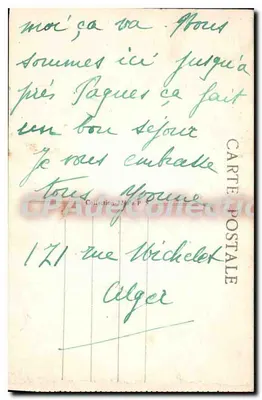 moi, ça va. Nous
sommes ici jusqu'à
près Pâques ça fait
un bon séjour
Je vous embrasse
tous, Yvonne
171 rue Michelet
Alger
CARTE POSTALE